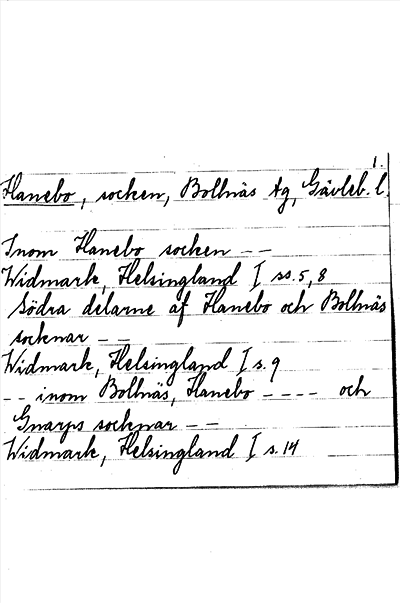 1.
Hanebo, socken, Bollnäs tg, Gävleb. l.
Inom Hanebo socken – –
Widmark, Helsingland I ss. 5, 8
Södra delarne af Hanebo och Bollnäs
socknar – –
Widmark, Helsingland I s. 9
– – inom Bollnäs, Hanebo – – – – och
Gnarps socknar – –
Widmark, Helsingland I s. 14